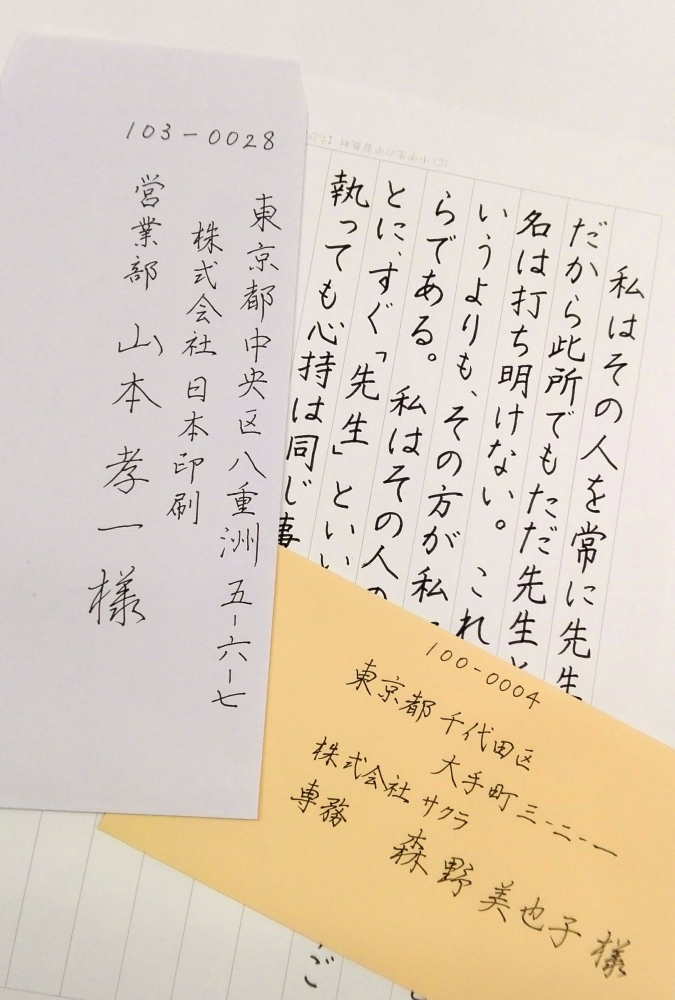 103-0028
東京都中央区八重洲 五-六-七
株式会社 日本印刷
営業部 山本 孝一 様
私はその人を常に先生
だから此所でもただ先生と
名は打ち明けない。これ
いうよりも、その方が私
らである。私はその人の
とに、すぐ「先生」といい
執っても心持は同じ事
100-0004
東京都千代田区
大手町 三-二-一
株式会社 サクラ
専務 森野 美也子 様
ご